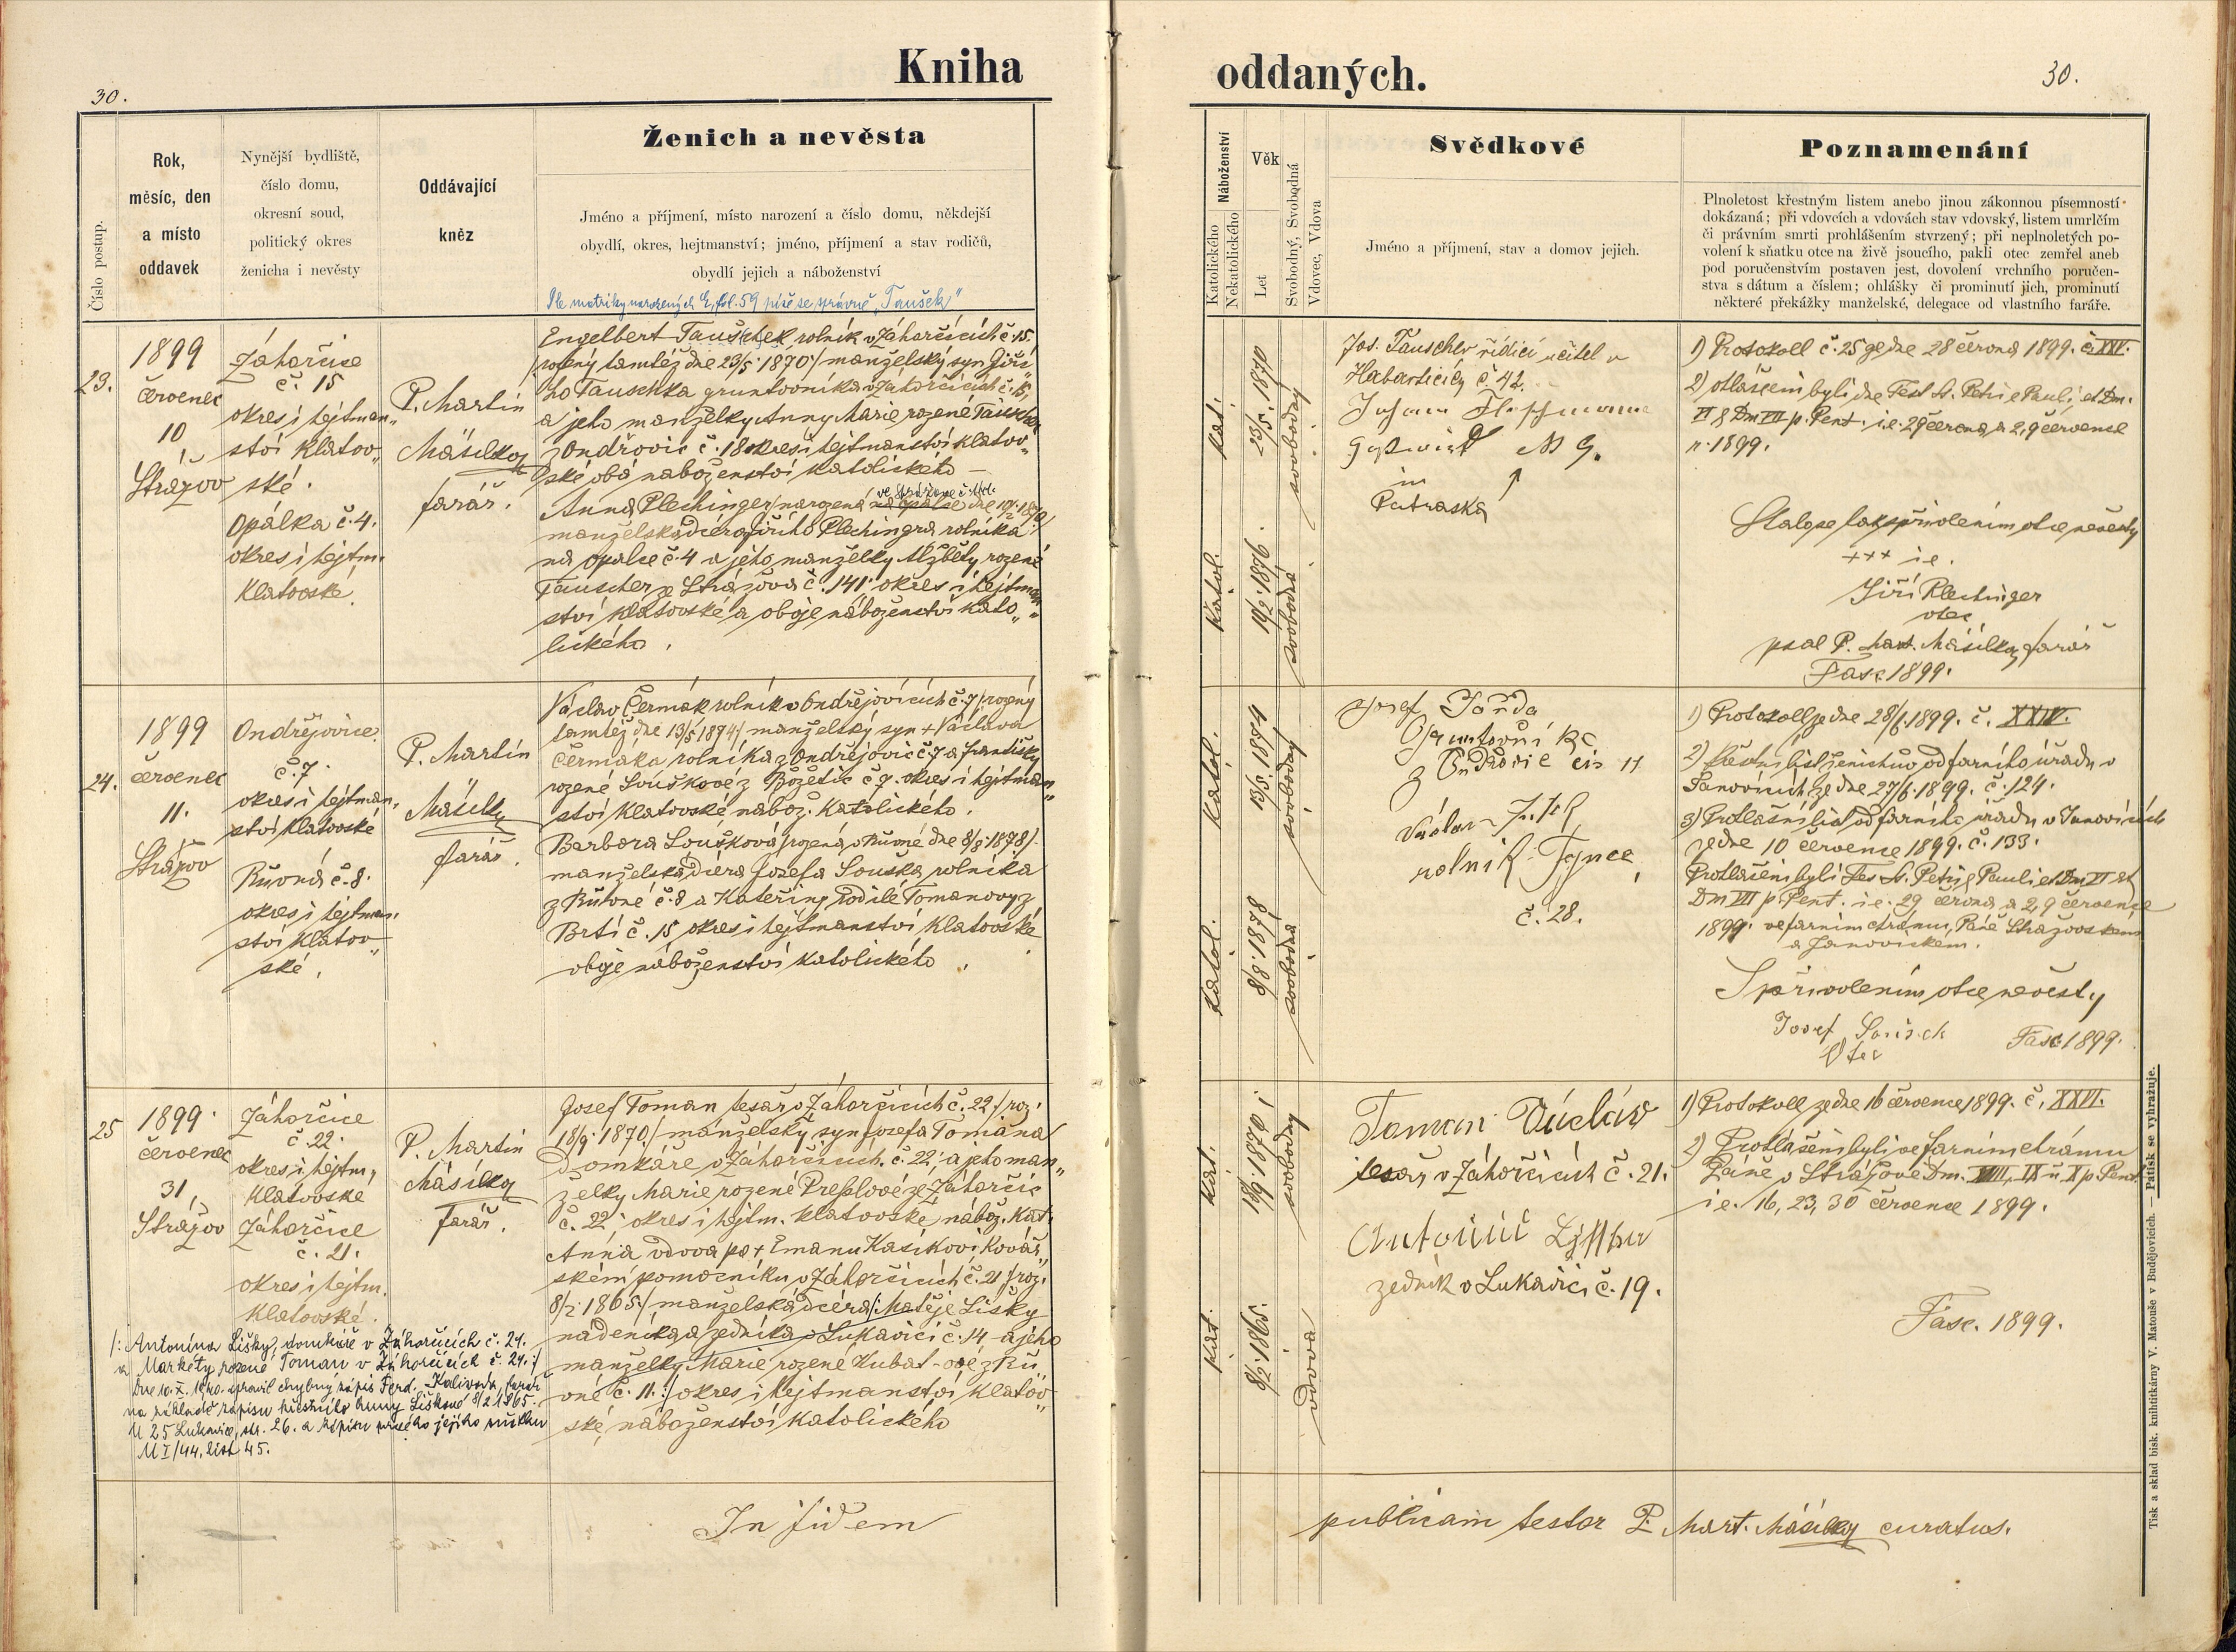 Kniha
oddaných.
30.
30.
Číslo postup.
Rok,
měsíc, den
a místo
oddavek
Nynější bydliště,
číslo domu,
okresní soud,
politický okres
ženicha i nevěsty
Oddávající
kněz
Ženich a nevěsta
Jméno a příjmení, místo narození a číslo domu, někdejší
obydlí, okres, hejtmanství; jméno, příjmení a stav rodičů,
obydlí jejich a náboženství
Náboženství
Katolického
Nekatolického
Věk
Let
Svobodný, Svobodná
Vdovec, Vdova
Svědkové
Jméno a příjmení, stav a domov jejich.
Poznamenání
Plnoletost křestným listem anebo jinou zákonnou písemností
dokázaná; při vdovcích a vdovách stav vdovský, listem umrlčím
či právním smrti prohlášením stvrzený; při neplnoletých po-
volení k sňatku otce na živě jsoucího, pakli otec zemřel aneb
pod poručenstvím postaven jest, dovolení vrchního poručen-
stva s dátum a číslem; ohlášky či prominutí jich, prominutí
některé překážky manželské, delegace od vlastního faráře.
Dle matriky narozených E, fol. 59 píše se správně „Taušek"
23.
1899
červenec
10
Strážov
Záhorčice
č. 15
okres i hejtman„
ství Klatov„
ské.
Opálka č. 4.
okres i hejtm.
Klatovské.
P. Martin
Másilko
farář.
Engelbert Tauschek, rolník v Záhorčicích č. 15.
/rozený tamtéž dne 23/5. 1870/ manželský syn Jiří„
ho Tauschka gruntovníka v Záhorčicích č. 15,
a jeho manželky Anny Marie rozené Tauscher
z Ondřovic č. 18 okres i hejtmanství Klatov„
ské obá náboženství katolického —
ve Strážově č. 141.
Anna Plechinger /narozená na Opálce dne 19/2. 1876/
manželská dcera Jiřího Plechingra rolníka
na Opálce č. 4 a jeho manželky Alžběty rozené
Tauscher ze Strážova č. 141. okres i hejtman„
ství Klatovské a oboje náboženství kato„
lického.
kat.
23/5. 1870
svobodný
Katol.
19/2. 1876.
svobodná
Jos. Tauscher řídící učitel v
Habarticích č. 42.
Johann
in
1) Protokoll č. 25 ze dne 28 června 1899. č. XXV.
2) ohlášeni byli dne Fest S. Petri e Pauli, et Dm.
VI & Dm VII p. Pent. i.e. 29 června a 2, 9 července
r. 1899.
Stalo se tak s přivolením otce nevěsty
+++ i.e.
Jiří Plechinger
otec
psal P. Mart. Másilko, farář
Fasc. 1899.
24.
1899
červenec
11.
Strážov
Ondřejovice
č. 7.
okres i hejtman„
ství Klatovské
Růvná č. 8.
okres i hejtman„
ství Klatov„
ské.
P. Martin
Másilko
farář.
Václav Čermák rolník v Ondřejovicích č. 7 /rozený
tamtéž dne 13/5 1874/ manželský syn + Václava
Čermáka rolníka z Ondřejovic č. 7 a Františky
rozené Souškové z Božetic č 7. okres i hejtman„
ství Klatovské nábož. Katolického.
Barbora Soušková /rozená v Růvné dne 8/8. 1878/.
manželská dcera Josefa Souška rolníka
z Růvné č. 8 a Kateřiny rodilé Tomanovy z
Brtí č. 15 okres i hejtmanství Klatovské
oboje náboženství katolického.
Katol.
13/5. 1874
svobodný
Katol.
8/8. 1878
svobodná
Josef Janda
z Ondřovic čís 11
Václav
rolník Tynce
č. 28.
1) Protokoll ze dne 28/6. 1899. č. XXIV.
2) Křestní list ženichův od farního úřadu v
Janovicích ze dne 27/6. 1899. č. 124.
3) Prohlašní list od farního úřadu v Janovicích
ze dne 10 července 1899. č. 133.
Prohlášeni byli Fes S. Petri & Pauli et Dm VI et
Dm VII p. Pent. i.e. 29 června a 2, 9 července
1899. ve farním chrámu Páně Strážovském
a Janovickém.
S přivolením otce nevěsty
Josef Sousek
Otec
Fasc 1899.
25
1899.
červenec
31,
Strážov
Záhorčice
č. 22.
okres i hejtm„
Klatovské
Záhorčice
č. 21.
okres i hejtm.
Klatovské.
P. Martin
Másilko
farář.
Josef Toman tesař v Záhorčicích č. 22, /roz.
18/9. 1870./ manželský syn Josefa Tomana
domkáře v Záhorčicích č. 22, a jeho man„
želky Marie rozené Preslové ze Záhorčic
č. 22 okres i hejtm. Klatovské, nábož. kat.
Anna vdova po + Emanu Kasíkovi Kovář„
ském pomocníku v Záhorčicích č. 21 /roz.
8/2. 1865./ manželská dcera /: Matěje Lišky
nádeníka a zedníka v Lukavici č. 14 a jeho
manželky Marie rozené Kubat-ové z Rů„
vné č. 11.:/ okres i hejtmanství Klatov„
ské, náboženství katolického
/: Antonína Lišky, domkáře v Záhorčicích č. 21.
a Markéty rozené Toman v Záhorčicích č. 21.:/
Dne 10. X. 1940. opravil chybný zápis Ferd. Kalivoda, farář
na základě zápisu křestního Anny Liškové 8/2 1865.
M 25 Lukavice, str. 26. a zápisu prvního jejího sňatku
M I/44, list 45.
Kat.
18/9. 1870
svobodný
kat.
8/2. 1865.
vdova
Toman Václav
tesař v Záhorčicích č. 21.
Antonín
zedník v Lukavici č. 19.
1) Protokoll ze dne 16 července 1899. č. XXVI.
2) Prohlášeni byli ve farním chrámu
Páně v Strážově Dm. VIII, IX u X p. Pent.
i.e. 16, 23, 30 července 1899.
Fasc. 1899.
In fidem
publicam testor P. Mart. Másilko curatus.
Tisk a sklad bisk. knihtiskárny V. Matouše v Budějovicích. — Patisk se vyhražuje.